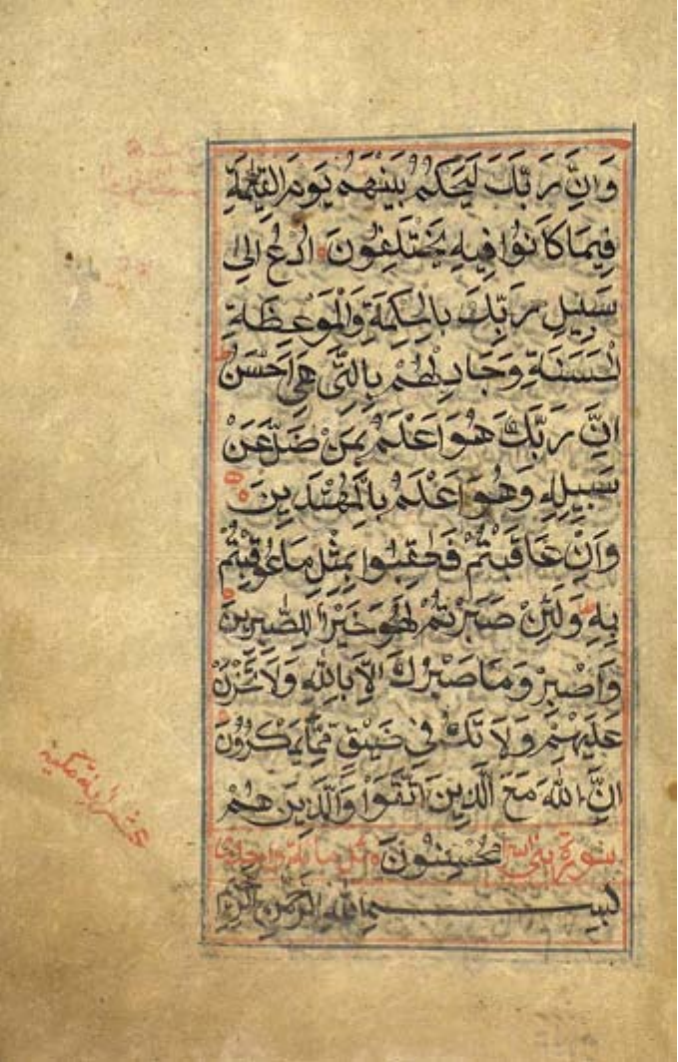 وَاِنَّ رَبَّكَ لَيَحْكُمُ بَيْنَهُمْ يَوْمَ الْقِيٰمَةِ
فِيمَا كَانُوا فِيهِ يَخْتَلِفُونَ اُدْعُ اِلٰى
سَبِيلِ رَبِّكَ بِالْحِكْمَةِ وَالْمَوْعِظَةِ
الْحَسَنَةِ وَجَادِلْهُمْ بِالَّتِى هِىَ اَحْسَنُ
اِنَّ رَبَّكَ هُوَ اَعْلَمُ بِمَنْ ضَلَّ عَنْ
سَبِيلِهِ وَهُوَ اَعْلَمُ بِالْمُهْتَدِينَ
وَاِنْ عَاقَبْتُمْ فَعَاقِبُوا بِمِثْلِ مَا عُوقِبْتُمْ
بِهِ وَلَئِنْ صَبَرْتُمْ لَهُوَ خَيْرٌ لِلصّٰبِرِينَ
وَاصْبِرْ وَمَا صَبْرُكَ اِلَّا بِاللّٰهِ وَلَا تَحْزَنْ
عَلَيْهِمْ وَلَا تَكُ فِى ضَيْقٍ مِمَّا يَمْكُرُونَ
اِنَّ اللّٰهَ مَعَ الَّذِينَ اتَّقَوْا وَالَّذِينَ هُمْ
سورة بنى مُحْسِنُونَ
بِسْمِ اللّٰهِ الرَّحْمٰنِ الرَّحِيمِ